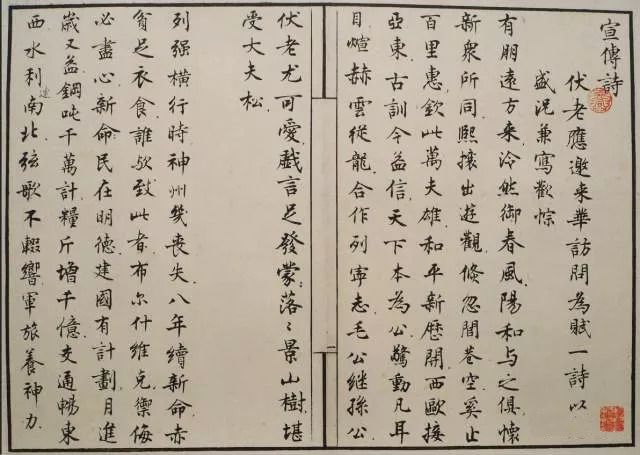 宣傳詩
伏老應邀来華訪問為賦一詩以
盛況兼寫歡悰
有朋遠方来泠然御春風陽和与之俱懷
新衆所同熙攘出遊觀倏忽閭巷空奚止
百里惠欽此萬夫雄和平新曆開西歐接
亞東古訓今益信天下本為公驚動凡耳
目煊赫雲從龍合作列寧志毛公継孫公
伏老尤可愛戲言足發蒙落〻景山樹堪
受大夫松
列强横行時神州幾喪失八年續新命赤
貧足衣食誰歟致此者布尔什維克禦侮
必盡心新命民在明德建國有計劃月進
歲又益鋼吨千萬計糧斤增千億交通暢東
西水利南北弦歌不輟響軍旅養神力